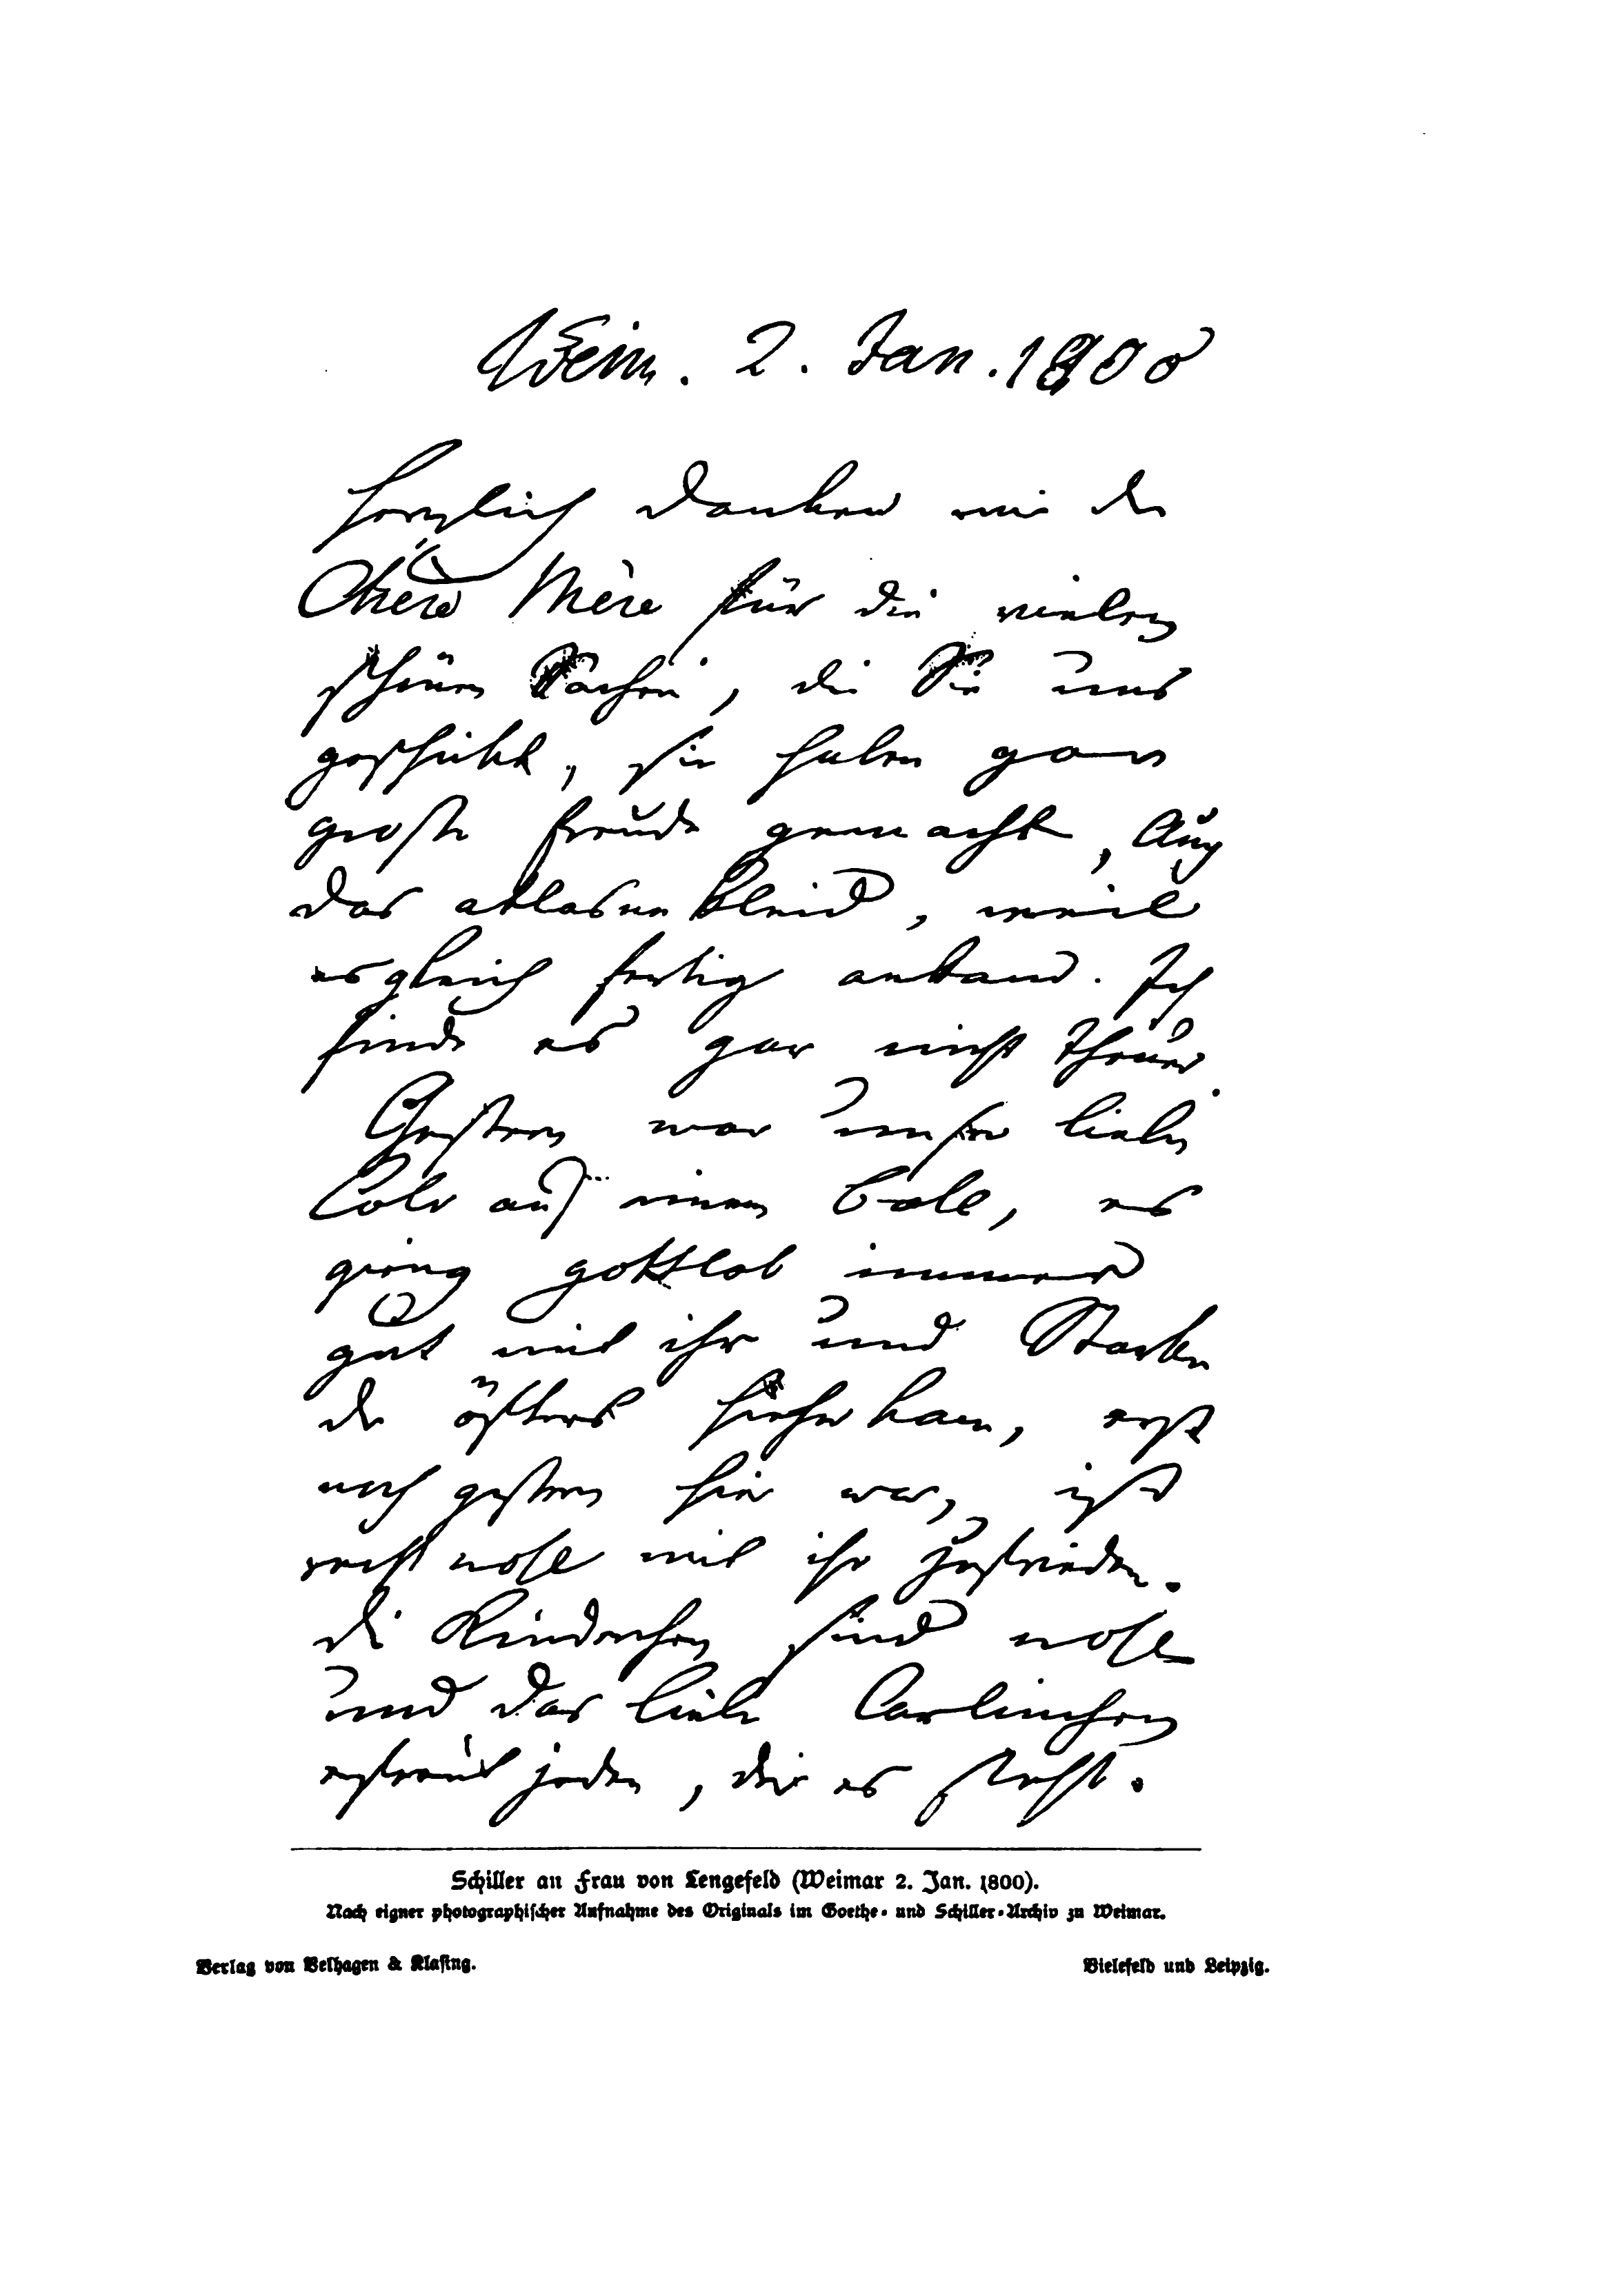 Weim. 2. Jan. 1800
Herzlich danken wir der
Chère Mère für die vielen
schönen Sachen, die Sie uns
geschickt, sie haben gar
große Freude gemacht, Auch
das atlasne Kleid, weil
es gleich fertig ankam. Ich
finde es gar nicht theuer.
Gestern war unsre liebe
Lolo auf einem Ball, es
ging gottlob immer
gut mit ihr und Starke
der öfters hieher kam, erst
noch gestern hier war, ist
recht wohl mit ihr zufrieden.
die Kinderchen sind wohl
und das liebe Carlinchen
erfreut jeden, der es sieht.
Schiller an Frau von Lengefeld (Weimar 2. Jan. 1800).
Nach eigner photographischer Aufnahme des Originals im Goethe- und Schiller-Archiv zu Weimar.
Verlag von Velhagen & Klasing. Bielefeld und Leipzig.